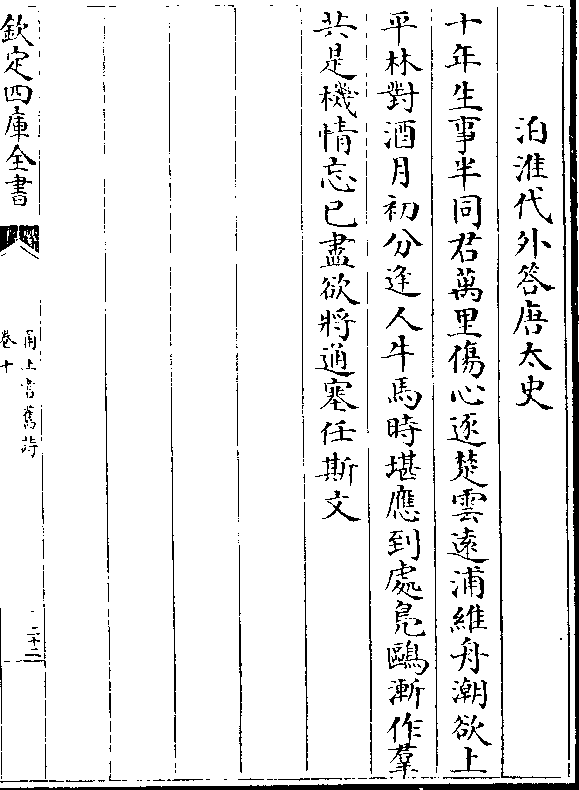 泊淮代外答唐太史
十年生事半同君萬里傷心逐楚雲遠浦維舟潮欲上
平林對酒月初分逢人牛馬時堪應到處鳬鷗漸作羣
共是機情忘已盡欲將通塞任斯文
欽定四庫全書
甬上耆舊詩
卷十
二十二